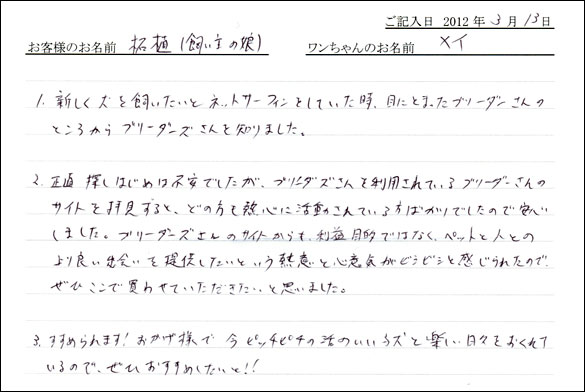 ご記入日 2012年 3月 13日
お客様のお名前 柘植(飼い主の娘) ワンちゃんのお名前 メイ
1. 新しく犬を飼いたいとネットサーフィンをしていた時、目にとまったブリーダーさんの
ところからブリーダーズさんを知りました。
2. 正直 探しはじめは不安でしたが、ブリーダーズさんを利用されているブリーダーさんの
サイトを拝見すると、どの方も熱心に活動されている方ばかりでしたので安心
しました。ブリーダーズさんのサイトからも、利益目的ではなく、ペットと人との
より良い出会いを提供したいという熱意と心意気がビシビシと感じられたので、
ぜひここで買わせていただきたいと思いました。
3. すすめられます! おかげ様で今ピッチピチの活のいい 犬と楽しい日々をおくれて
いるので、ぜひおすすめしたいと!!